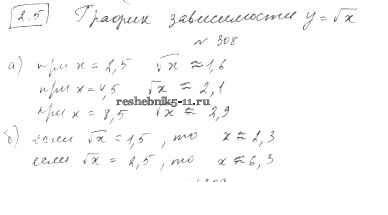 2.5 График зависимости y = √x
№ 308
а) при x = 2,5 √x ≈ 1,6
при x = 4,5 √x ≈ 2,1
при x = 8,5 √x ≈ 2,9
reshebnik5-11.ru
б) если √x = 1,5, то x ≈ 2,3
если √x = 2,5, то x ≈ 6,3